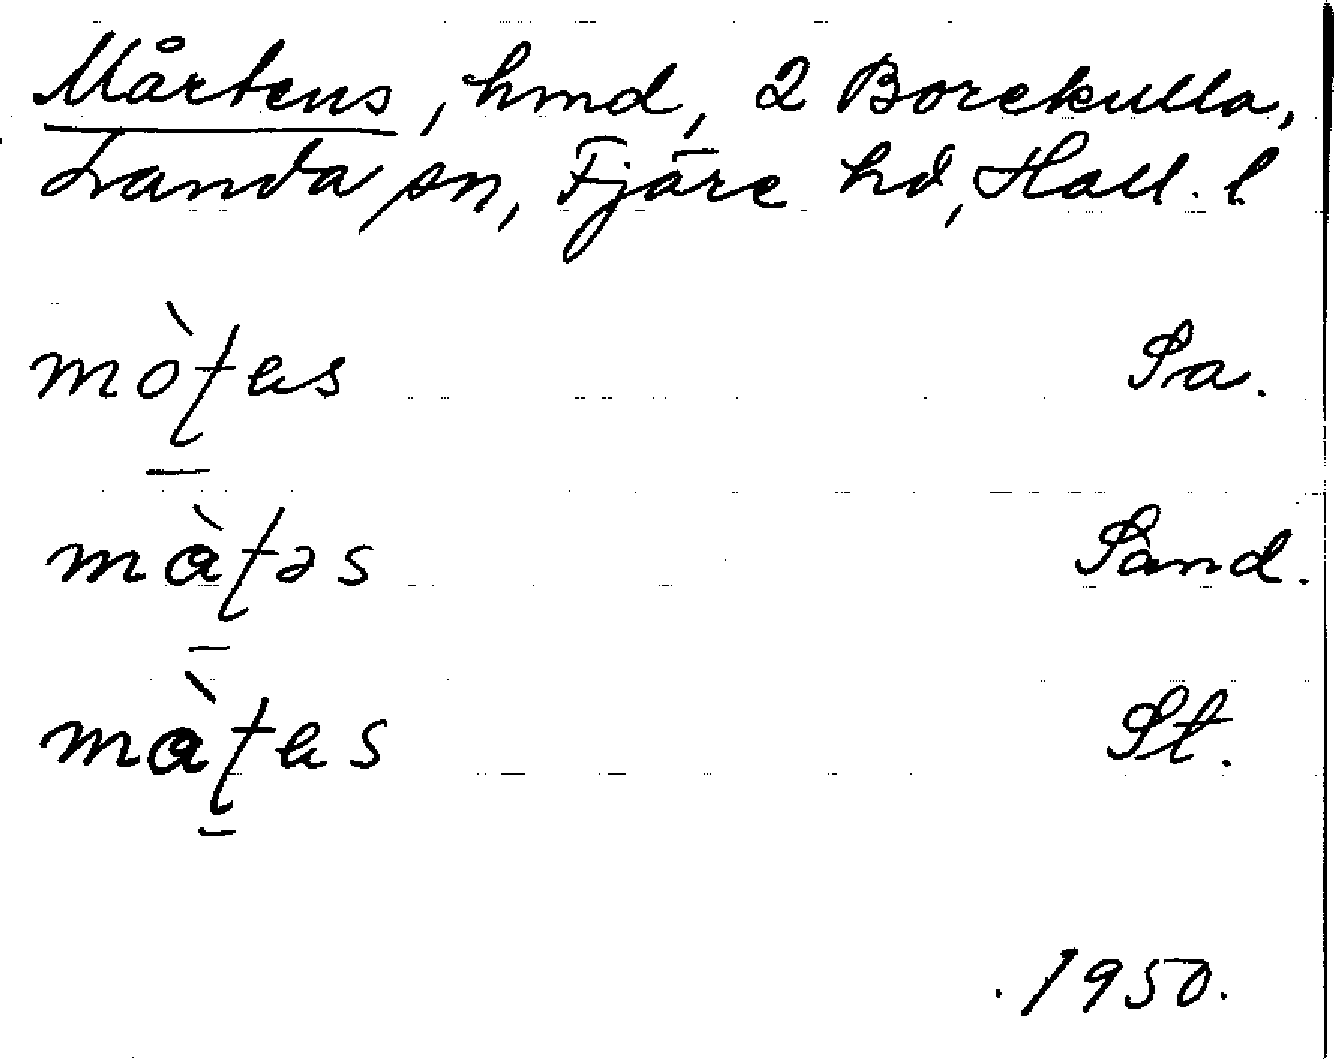 Mårtens, hmd, 2 Borekulla,
Landa sn, Fjäre hd, Hall. l
mòʈas Sa.
màʈəs Sand.
màʈas St.
1950.